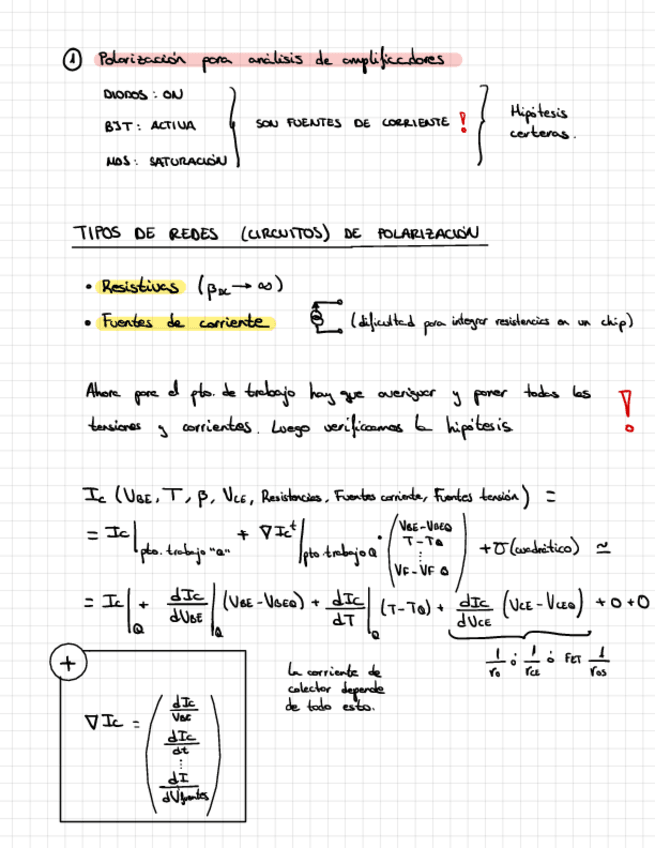 ① Polarización para análisis de amplificadores
DIODOS : ON
BJT : ACTIVA
MOS : SATURACIÓN
SON FUENTES DE CORRIENTE !
Hipótesis
certeras.
TIPOS DE REDES (CIRCUITOS) DE POLARIZACIÓN
• Resistivas (βDC → ∞)
• Fuentes de corriente (dificultad para integrar resistencias en un chip)
Ahora para el pto. de trabajo hay que averiguar y poner todas las
tensiones y corrientes. Luego verificamos la hipótesis !
Ic (VBE, T, β, VCE, Resistencias, Fuentes corriente, Fuentes tensión) =
= Ic | pto. trabajo "Q" + ∇Ic^t | pto trabajo Q (VBE-VBEQ
T-TQ
⋮
VF-VFQ) + σ(cuadrático) ≃
= Ic|Q + dIc/dVBE|Q (VBE-VBEQ) + dIc/dT|Q (T-TQ) + dIc/dVCE (VCE-VCEQ) + 0 + 0
1/ro ó 1/rce ó FET 1/ros
+
La corriente de
colector depende
de todo esto.
∇Ic = (dIc/VBE
dIc/dt
⋮
dI/dVfuentes)